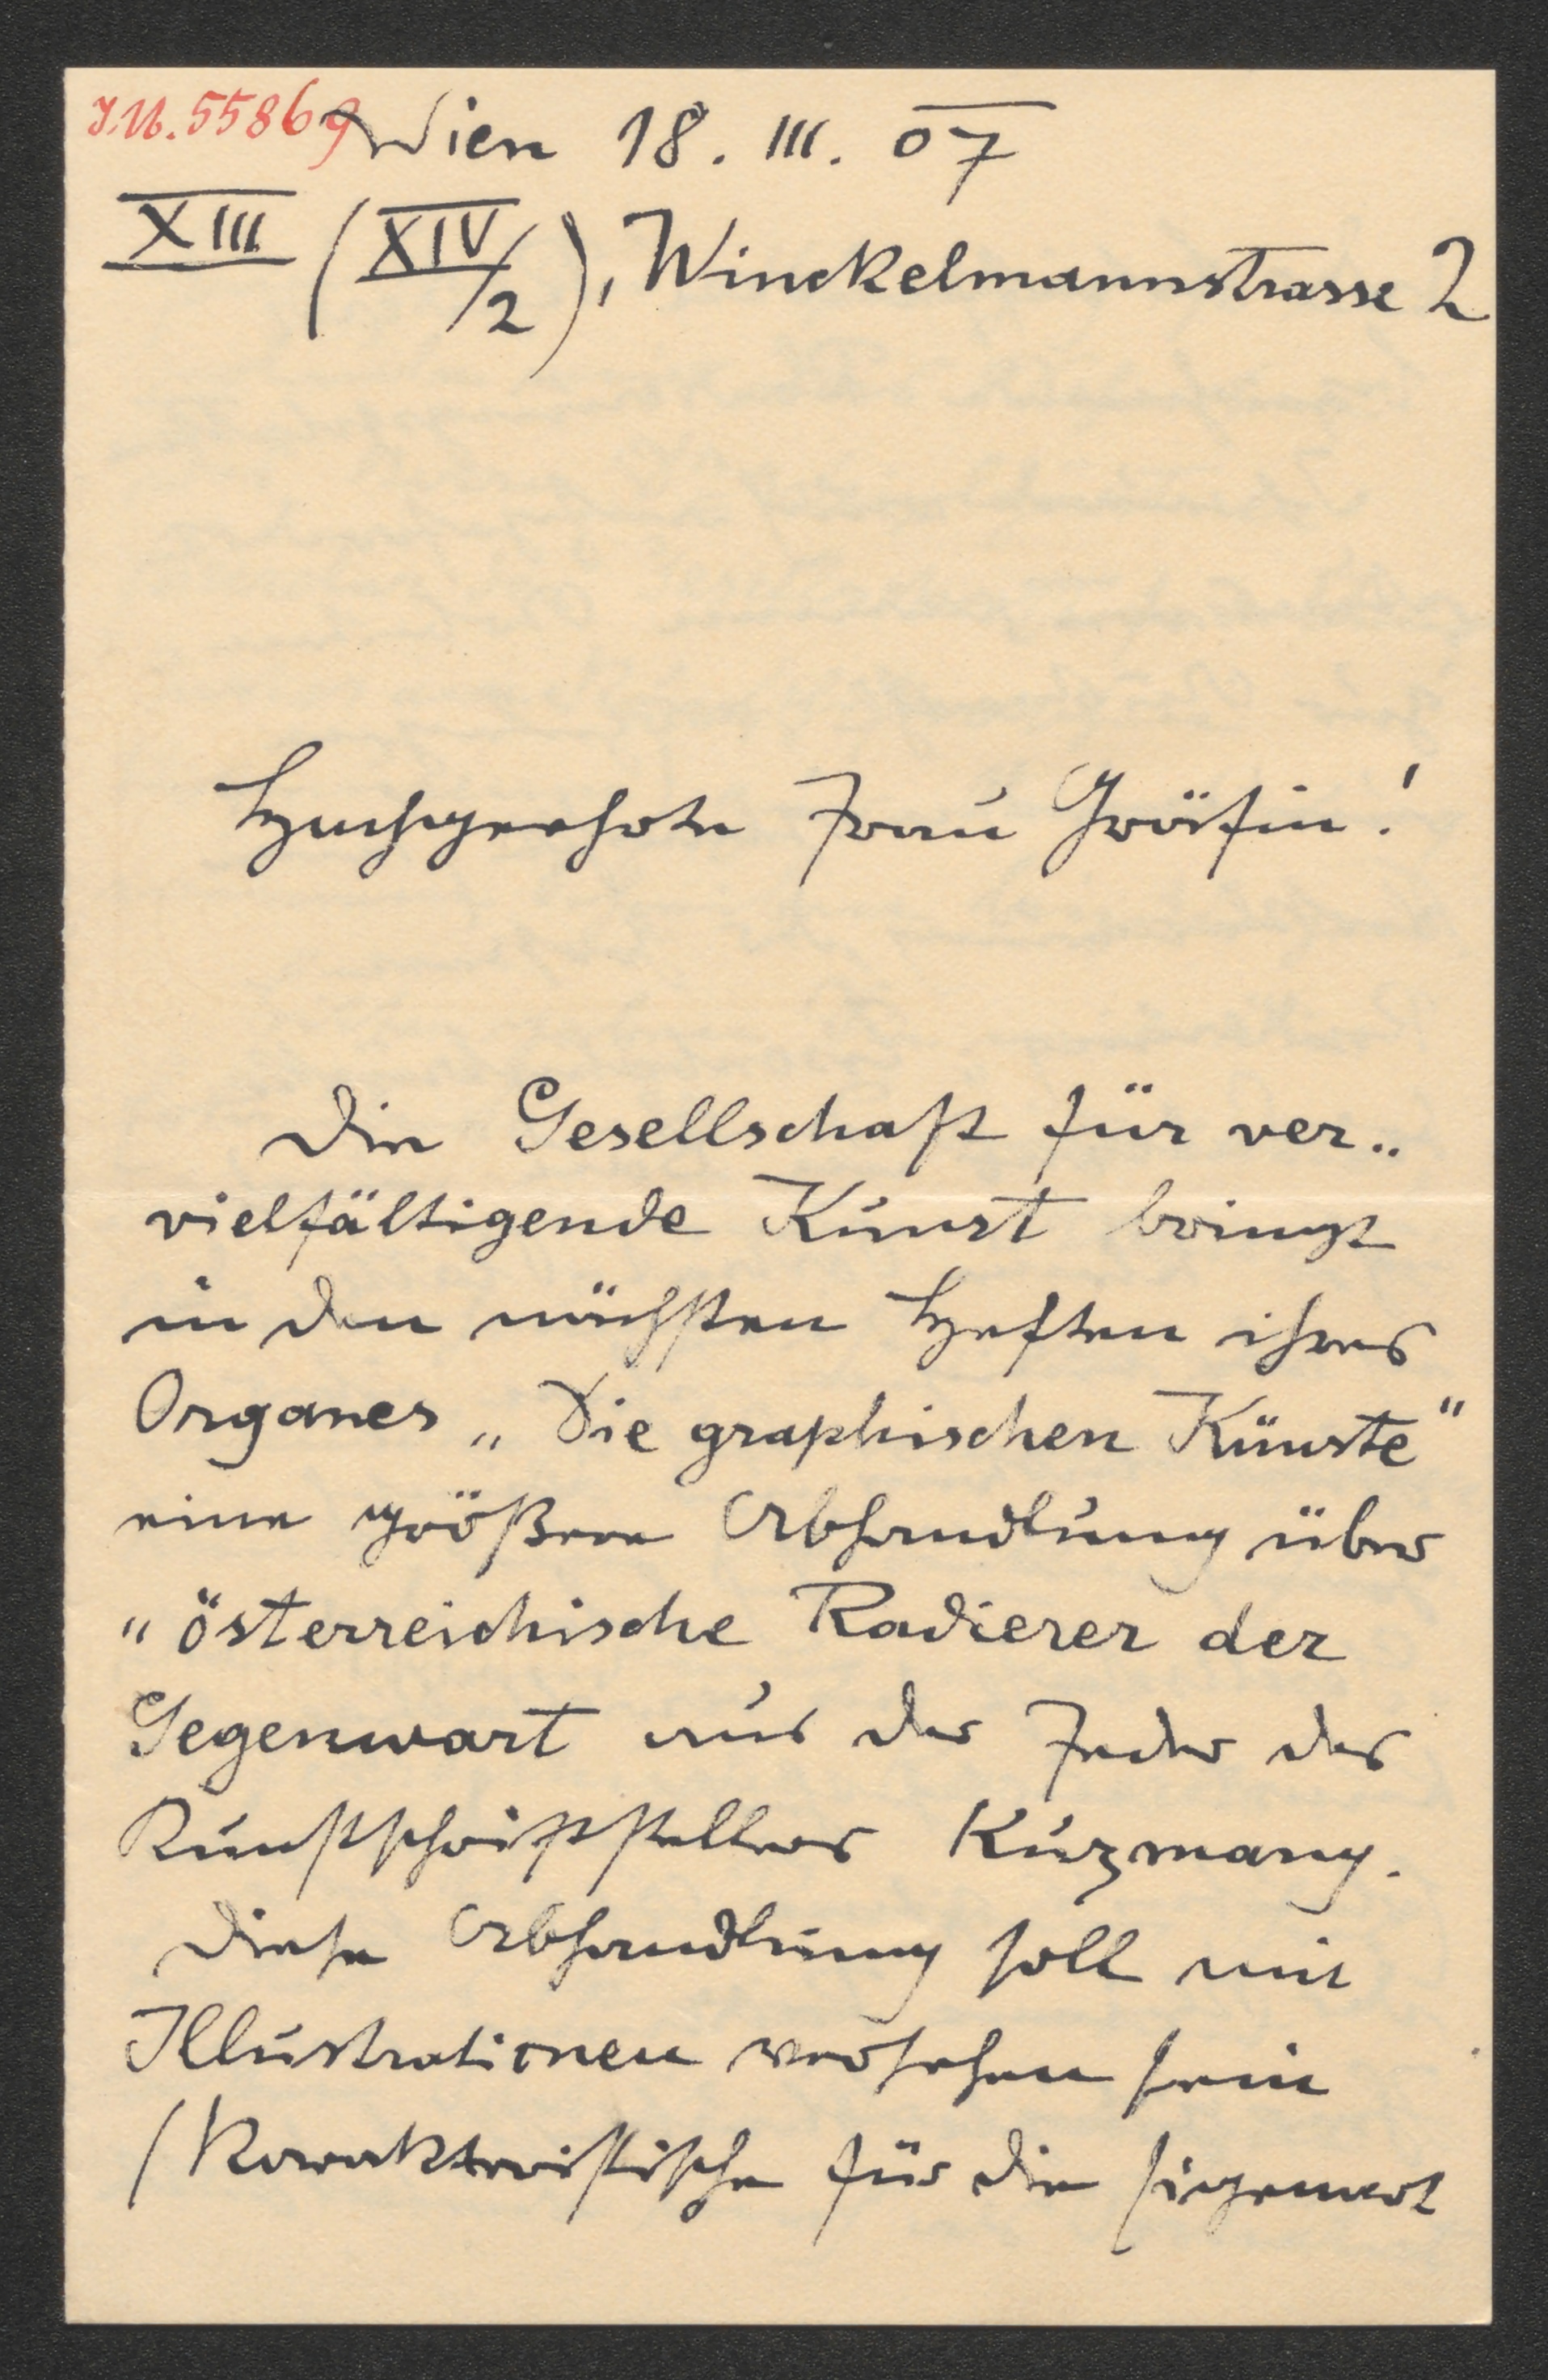 J.N. 55869
Wien 18. III. 07
XIII (XIV/2), Winckelmannstrasse 2
Hochgeehrte Frau Gräfin!
Die Gesellschaft für ver..
vielfältigende Kunst bringt
in den nächsten Heften ihres
Organes „Die graphischen Künste“
eine größere Abhandlung über
"österreichische Radierer der
Gegenwart aus der Feder des
Kunstschriftstellers Kuzmany.
Diese Abhandlung soll mit
Illustrationen versehen sein
(Karakteristische für die